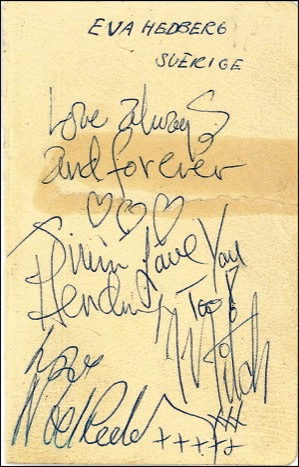 EVA HEDBERG
SVERIGE
Love always
and forever
♡♡♡
Love You
Hendrix Too
Mitch
Love
Noel Redd
XXX
+++++